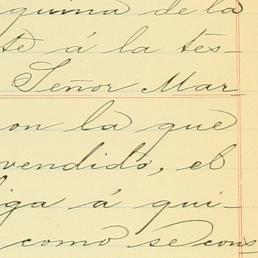 quina de la
te á la tes-
Señor Mar
on la que
vendido, el
iga á qui-
como se cons